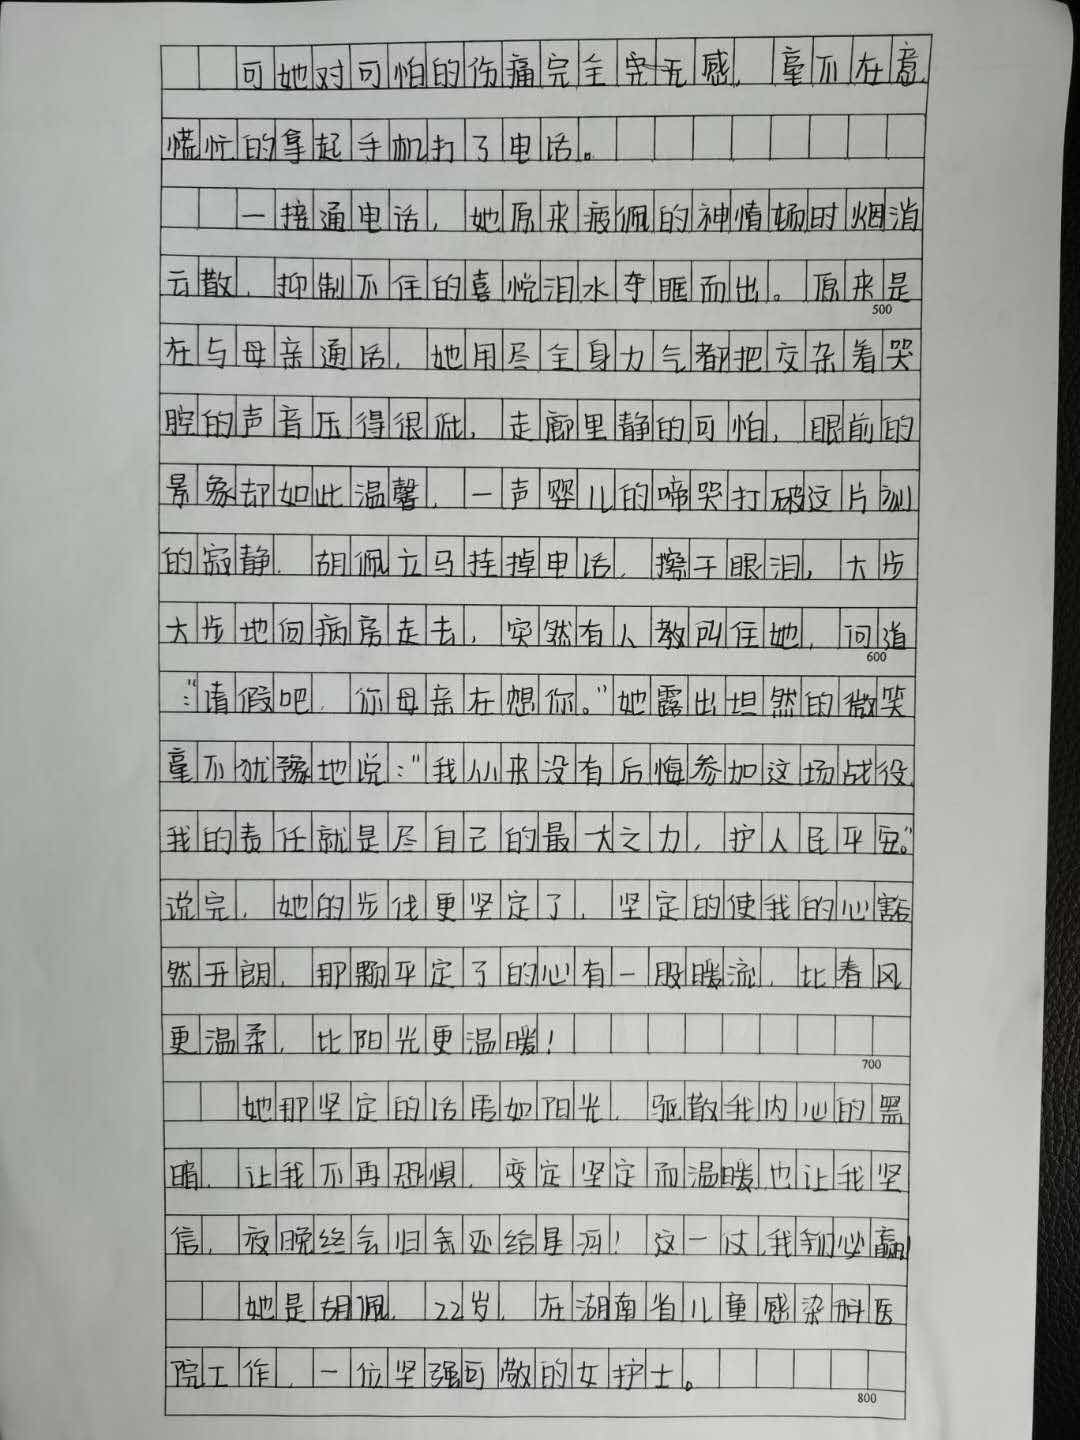 可她对可怕的伤痛完全无感，毫不在意，
慌忙的拿起手机打了电话。
一接通电话，她原来疲惫的神情顿时烟消
云散，抑制不住的喜悦泪水夺眶而出。原来是
500
在与母亲通话，她用尽全身力气都把交杂着哭
腔的声音压得很低，走廊里静的可怕，眼前的
景象却如此温馨，一声婴儿的啼哭打破这片刻
的寂静，胡佩立马挂掉电话，擦干眼泪，大步
大步地向病房走去，突然有人教叫住她，问道
600
：“请假吧，你母亲在想你。”她露出坦然的微笑
毫不犹豫地说：“我从来没有后悔参加这场战役，
我的责任就是尽自己的最大之力，护人民平安。”
说完，她的步伐更坚定了，坚定的使我的心豁
然开朗，那颗平定了的心有一股暖流，比春风
更温柔，比阳光更温暖！
700
她那坚定的话语如阳光，驱散我内心的黑
暗，让我不再恐惧，变定坚定而温暖，也让我坚
信，夜晚终会归舍还给星河！这一仗，我们必赢！
她是胡佩，22岁，在湖南省儿童感染科医
院工作，一位坚强可敬的女护士。
800